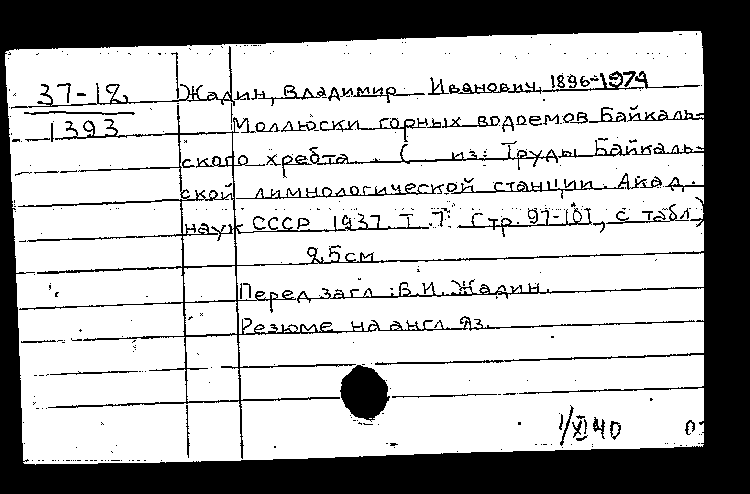 37-12
1393
Жадин, Владимир Иванович, 1896-1974
Моллюски горных водоемов Байкаль-
ского хребта. ( из: Труды Байкаль-
ской лимнологической станции. Акад.
наук СССР 1937. Т. 7. Стр. 97-101, с табл)
25см
Перед загл: В.И. Жадин.
Резюме на англ. яз.
1/XI 40